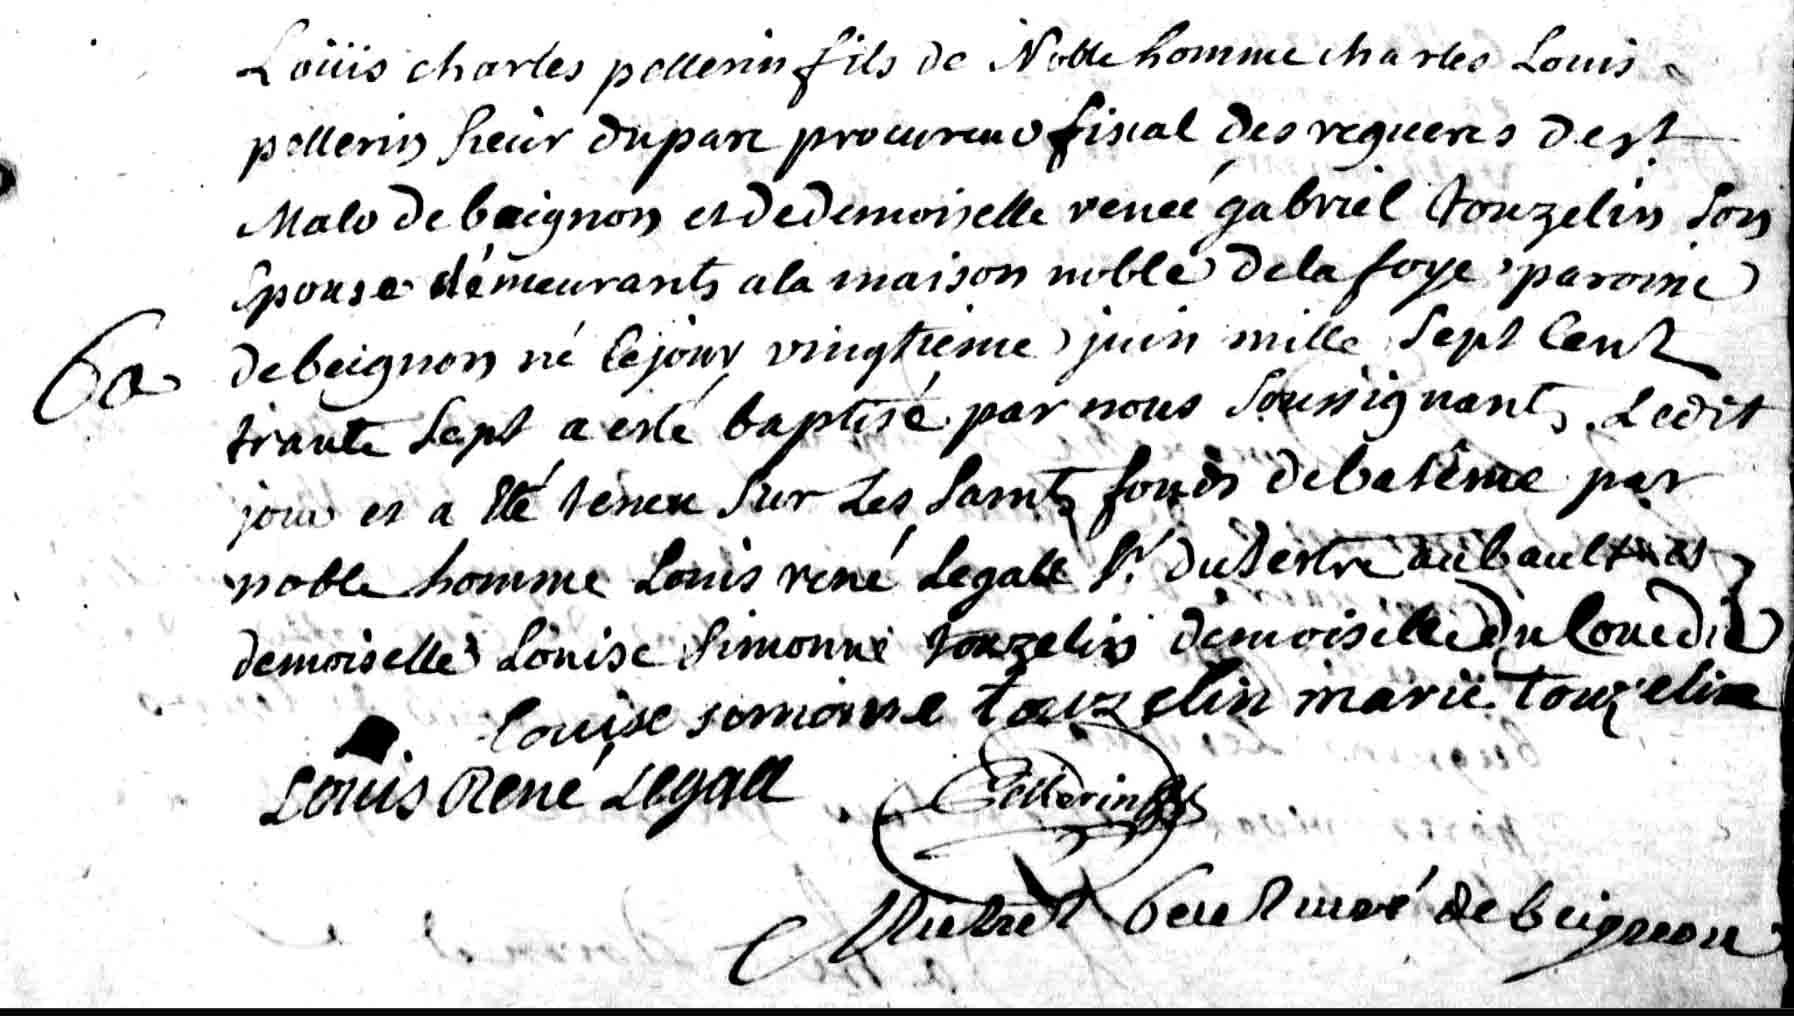 Loüis charles pellerin fils de Noble homme charles Louis
pellerin sieur duparc procureur fiscal des regueres de st
Malo de beignon et de demoiselle reneé gabriel touzelin son
Epouse démeurants a la maison noble de la foye paroisse
Ba de beignon né le jour vingtieme juin mille sept Cent
trante sept a esté baptisé par nous soussignants Ledit
jour et a été teneu sur Les saints fonds de batême par
noble homme Louis rené Legall Sr. du tertre aubault et
demoiselle Louise Simonne touzelin demoiselle du Couedic
Louise simonne touzelin marie touzelin
Louis René Legall Pellerin
de beignon